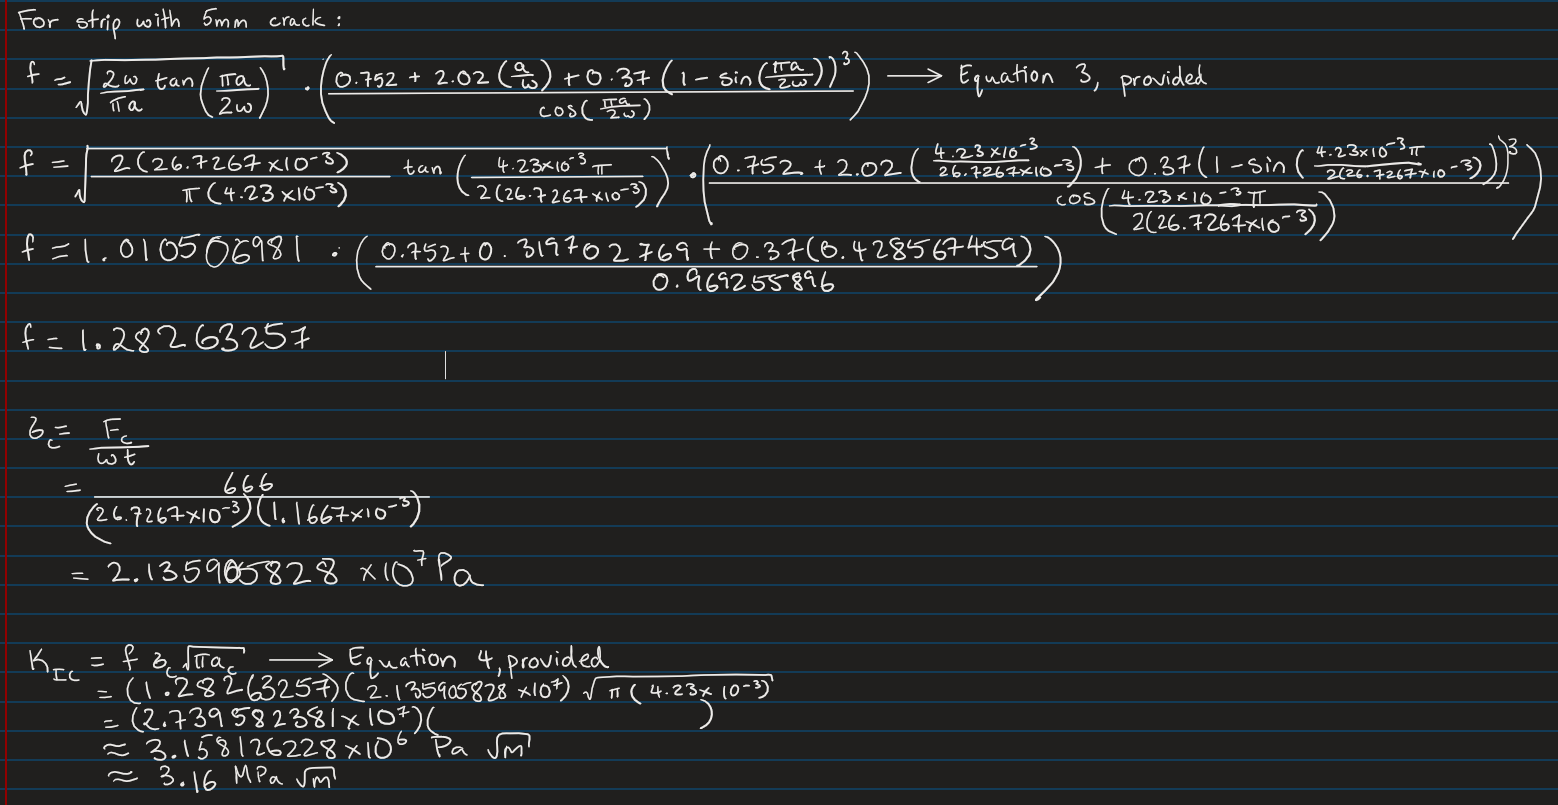 For strip with 5mm crack :
f = √(2w/πa tan(πa/2w)) · ((0.752 + 2.02 (a/w) + 0.37 (1 - sin(πa/2w))³)/cos(πa/2w)) → Equation 3, provided
f = √(2(26.7267×10⁻³)/π(4.23×10⁻³) tan(4.23×10⁻³π/2(26.7267×10⁻³))) · ((0.752 + 2.02 (4.23×10⁻³/26.7267×10⁻³) + 0.37(1 - sin(4.23×10⁻³π/2(26.7267×10⁻³)))³)/cos(4.23×10⁻³π/2(26.7267×10⁻³)))
f = 1.010506981 · ((0.752+0.319702769 + 0.37(0.428567459))/0.969255896)
f = 1.28263257
σc = Fc/wt
= 666/(26.7267×10⁻³)(1.1667×10⁻³)
= 2.135905828 ×10⁷ Pa
K_Ic = f σc √(πac) → Equation 4, provided
= (1.28263257)(2.135905828 ×10⁷) √(π(4.23×10⁻³))
= (2.739582381×10⁷)( )
≈ 3.158126228×10⁶ Pa √m
≈ 3.16 MPa √m